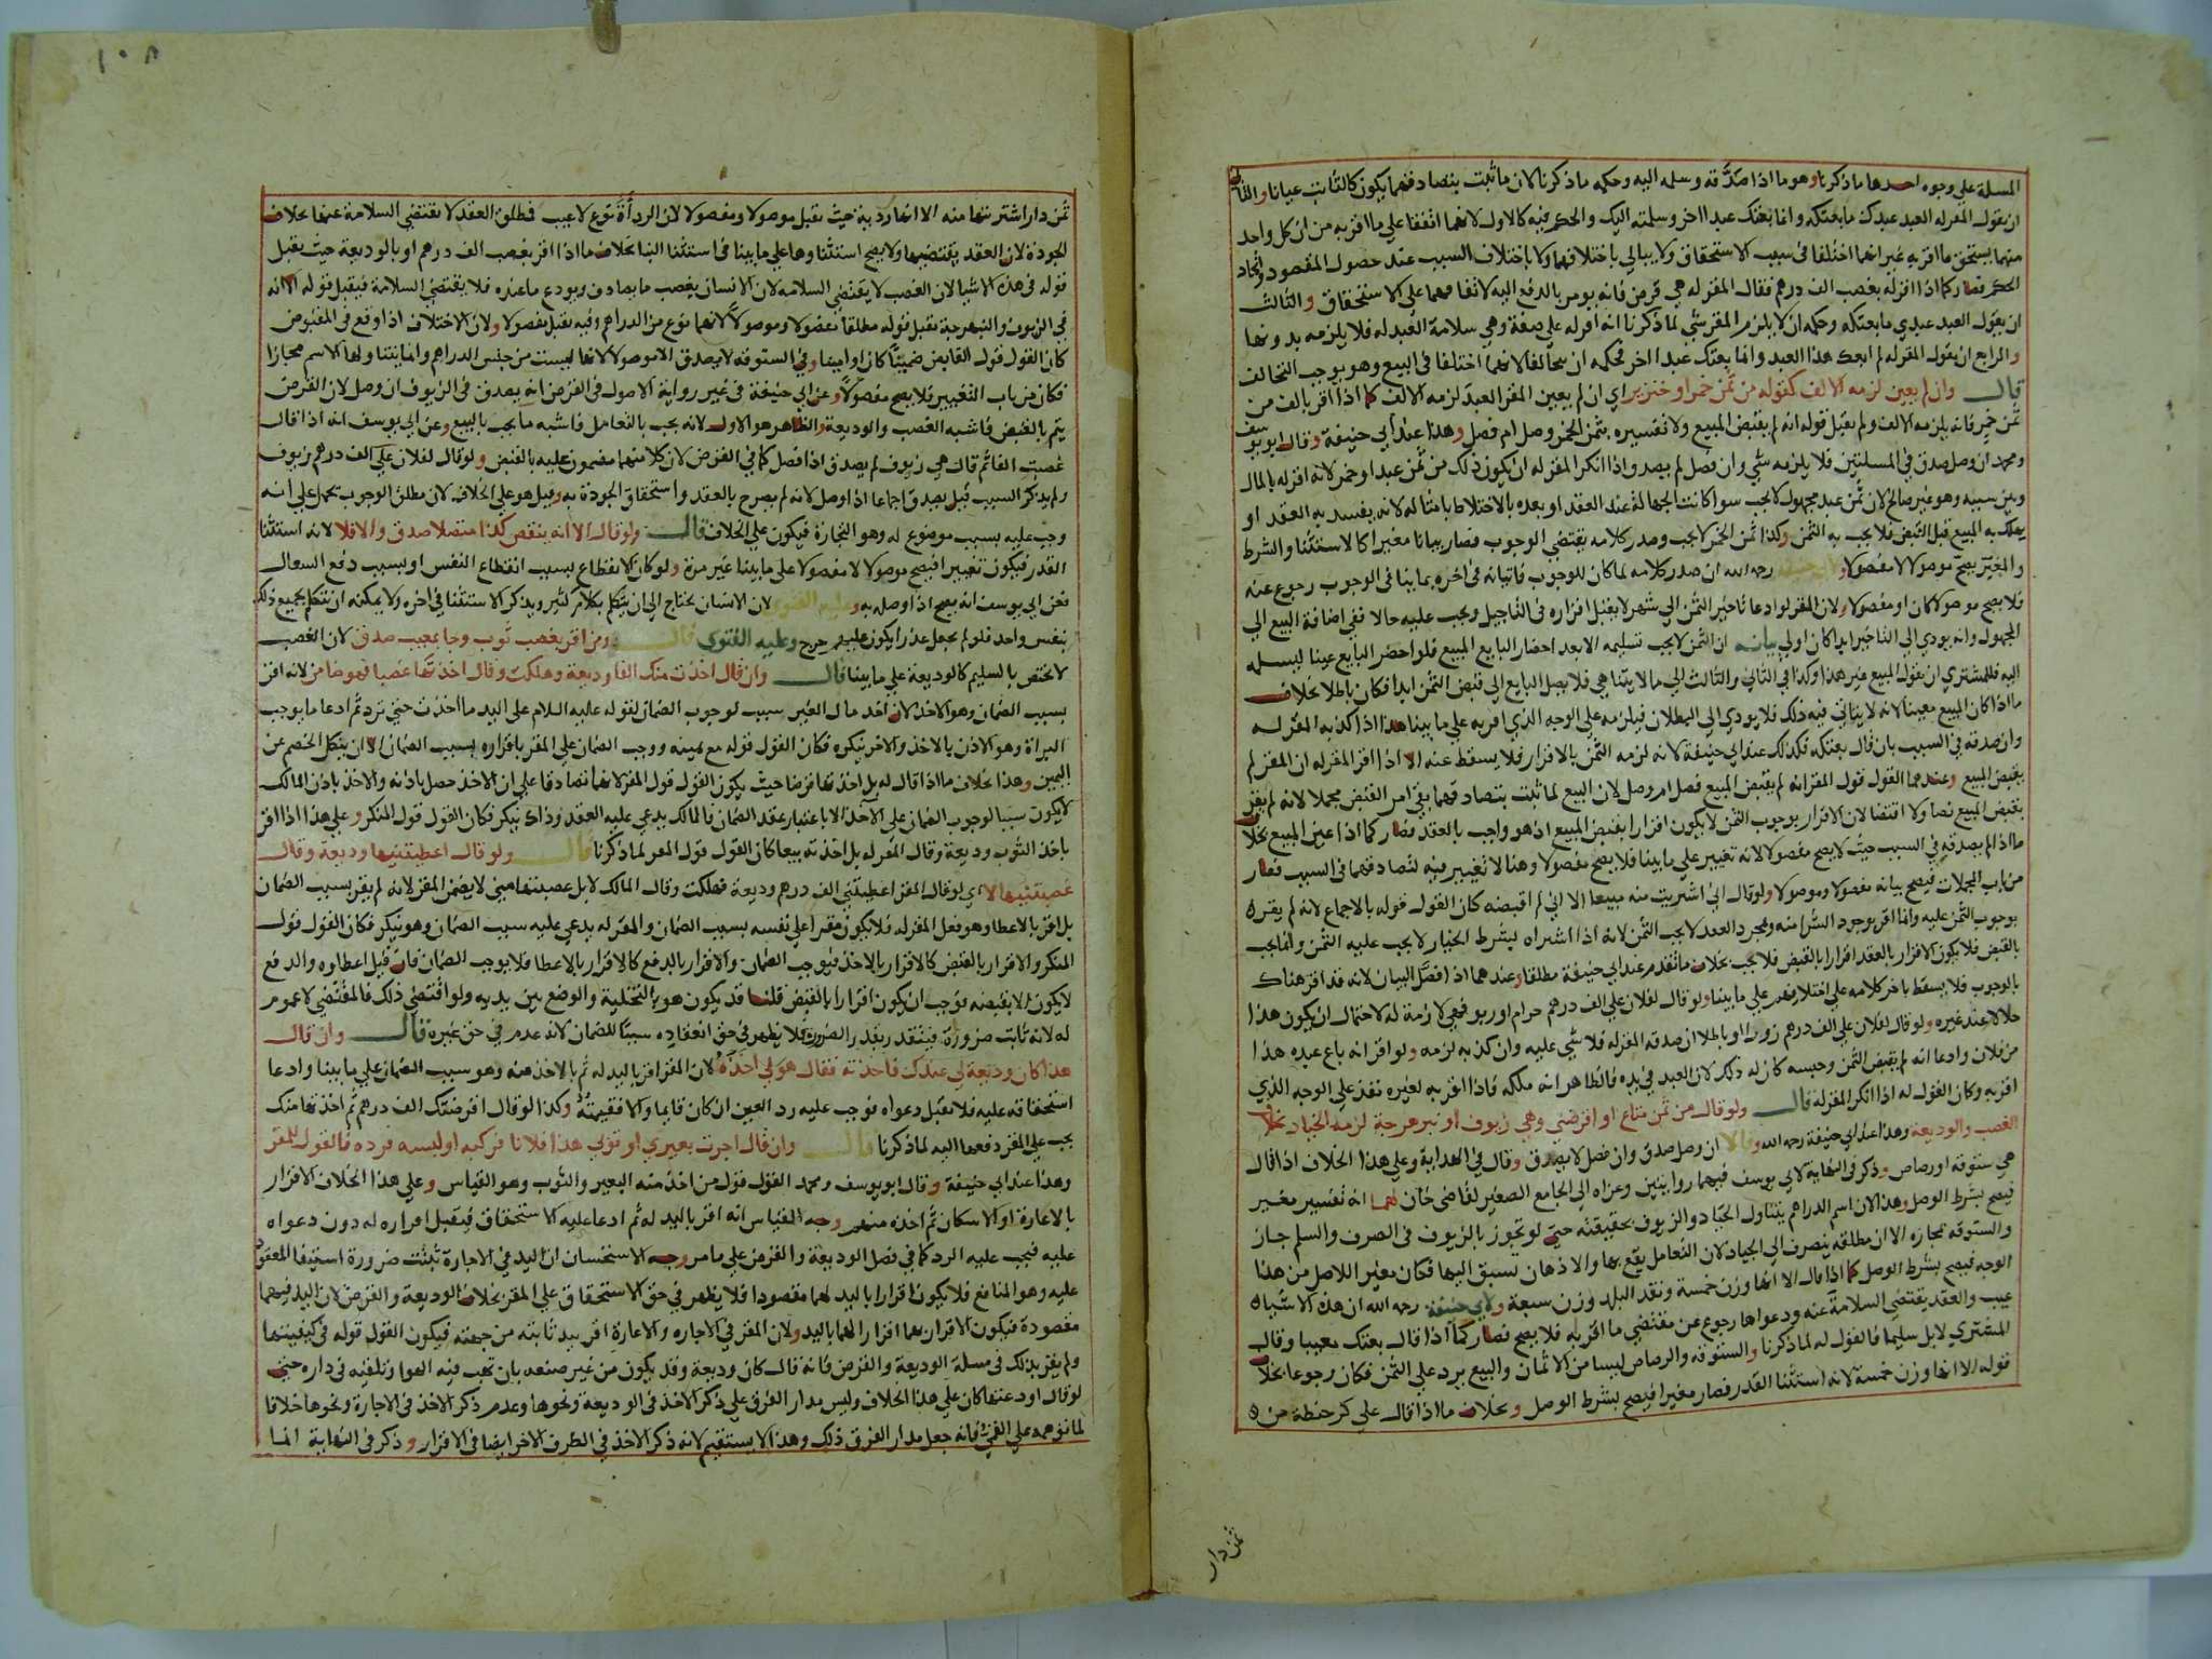 المسلة علي وجوه احدها ما ذكرنا وهو ما اذا صدقه وسلمه اليه وحكمه ما ذكرنا لان ما ثبت بتصادقهما يكون كالثابت عيانا والثاني
ان يقول المقر له العبد عبدك ما بعتكه وانما بعتك عبدا اخر وسلمته اليك والحكم فيه كالاول لانهما اتفقا علي ما اقر به من ان كل واحد
منهما يستحق ما اقر به غير انهما اختلفا في سبب الاستحقاق ولا يبالي باختلافهما ولا باختلاف السبب عند حصول المقصود واتحاد
الحكم فصار كما اذا اقر له بغصب الف درهم فقال المقر له هي قرض فانه يومر بالدفع اليه لاتفاقهما علي الاستحقاق والثالث
ان يقول العبد عبدي ما بعتكه وحكمه ان لا يلزم المقر شي لما ذكرنا انه اقر له علي صفة وهي سلامة العبد له فلا يلزمه بدونها
والرابع ان يقول المقر له لم ابعك هذا العبد وانما بعتك عبدا اخر فحكمه ان يتحالفا لانهما اختلفا في البيع وهو يوجب التحالف
قال وان لم يعين لزمه الالف كقوله من ثمن خمر او خنزير اي ان لم يعين المقر العبد لزمه الالف كما اذا اقر بالف من
ثمن خمر فانه يلزمه الالف ولم يقبل قوله انه لم يقبض المبيع ولا تفسيره بثمن الخمر وصل ام فصل وهذا عند ابي حنيفة وقال ابو يوسف
ومحمد ان وصل صدق في المسلتين فلا يلزمه شي وان فصل لم يصدق واذا انكر المقر له ان يكون ذلك من ثمن عبد او خمر لانه اقر له بالمال
وبين سببه وهو غير صالح لان ثمن عبد مجهول لا يجب سوا كانت الجهالة عند العقد او بعده بالاختلاط بامثاله لانه يفسد به العقد او
يهلك به المبيع قبل القبض فلا يجب به الثمن وكذا ثمن الخمر لا يجب وصدر كلامه يقتضي الوجوب فصار بيانا مغيرا كالاستثنا والشرط
والمغير يصح موصولا لا مفصولا ولابي حنيفة رحمه الله ان صدر كلامه لما كان للوجوب فاتيانه في اخره بما ينافي الوجوب رجوع عنه
فلا يصح موصولا كان او مفصولا ولان المقر لو ادعا تاخير الثمن الي شهر لا يقبل اقراره في التاجيل ويجب عليه حالا ففي اضافة البيع الي
المجهول وانه يودي الي التاخير ابدا كان اولي بيانه ان الثمن لا يجب تسليمه الا بعد احضار البايع المبيع فلو احضر البايع عينا ليسلمه
اليه فللمشتري ان يقول المبيع غير هذا وكذا في الثاني والثالث الي ما لا يتناهي فلا يصل البايع الي قبض الثمن ابدا فكان باطلا بخلاف
ما اذا كان المبيع معينا لانه لا يتاتي فيه ذلك فلا يودي الي البطلان فيلزمه علي الوجه الذي اقر به علي ما بينا هذا اذا كذبه المقر له
وان صدقه في السبب بان قال بعتكه فكذلك عند ابي حنيفة لانه لزمه الثمن بالاقرار فلا يسقط عنه الا اذا اقر المقر له ان المقر لم
يقبض المبيع وعندهما القول قول المقر انه لم يقبض المبيع فصل ام وصل لان البيع لما ثبت بتصادقهما بقي امر القبض مجملا لانه لم يقر
بقبض المبيع نصا ولا اقتضا لان الاقرار بوجوب الثمن لا يكون اقرارا بقبض المبيع اذ هو واجب بالعقد فصار كما اذا عين المبيع بخلاف
ما اذا لم يصدقه في السبب حيث لا يصح مفصولا لانه تغيير علي ما بينا فلا يصح مفصولا وهنا لا تغيير فيه لتصادقهما في السبب فصار
من باب المجملات فيصح بيانه مفصولا وموصولا ولو قال اني اشتريت منه مبيعا الا اني لم اقبضه كان القول قوله بالاجماع لانه لم يقر
بوجوب الثمن عليه وانما اقر بوجود الشرا منه وبمجرد العقد لا يجب الثمن لانه اذا اشتراه بشرط الخيار لا يجب عليه الثمن وانما يجب
بالقبض فلا يكون الاقرار بالعقد اقرارا بالقبض فلا يجب بخلاف ما تقدم عند ابي حنيفة مطلقا وعندهما اذا فصل البيان لانه قد اقر هناك
بالوجوب فلا يسقط باخر كلامه علي اختلافهم علي ما بينا ولو قال لفلان علي الف درهم حرام او ربو فهي لازمة له لاحتمال ان يكون هذا
حلالا عند غيره ولو قال لفلان علي الف درهم زورا او باطلا ان صدقه المقر له فلا شي عليه وان كذبه لزمه ولو اقر انه باع عبده هذا
من فلان وادعا انه لم يقبض الثمن وحبسه كان له ذلك لان العبد في يده فالظاهر انه ملكه فاذا اقر به لغيره نفذ علي الوجه الذي
اقر به وكان القول له اذا انكر المقر له قال ولو قال من ثمن متاع او اقرضني وهي زيوف او نبهرجة لزمه الجياد بخلاف
الغصب والوديعة وهذا عند ابي حنيفة رحمه الله وقالا ان وصل صدق وان فصل لا يصدق وقال في الهداية وعلي هذا الخلاف اذا قال
هي ستوقة او رصاص وذكر في النهاية لابي يوسف فيهما روايتين وعزاه الي الجامع الصغير لقاضي خان لهما انه تفسير مغير
فيصح بشرط الوصل وهذا لان اسم الدراهم يتناول الجياد والزيوف بحقيقته حتي لو تجوز بالزيوف في الصرف والسلم جاز
والستوقة بمجازه الا ان مطلقه ينصرف الي الجياد لان التعامل يقع بها والاذهان تسبق اليها فكان مغيرا للاصل من هذا
الوجه فيصح بشرط الوصل كما اذا قال الا انها وزن خمسة ونقد البلد وزن سبعة ولابي حنيفة رحمه الله ان هذه الاشياء
عيب والعقد يقتضي السلامة عنه ودعواها رجوع عن مقتضي ما اقر به فلا يصح فصار كما اذا قال بعتك معيبا وقال
المشتري لا بل سليما فالقول له لما ذكرنا والستوقة والرصاص ليسا من الاثمان والبيع يرد علي الثمن فكان رجوعا بخلاف
قوله الا انها وزن خمسة لانه استثنا القدر فصار مغيرا فيصح بشرط الوصل وبخلاف ما اذا قال علي كر حنطة من
ثمن دار
١٠٨
ثمن دار اشتريتها منه الا انها ردية حيث يقبل موصولا ومفصولا لان الرداة نوع لا عيب فمطلق العقد لا يقتضي السلامة عنها بخلاف
الجودة لان العقد يقتضيها ولا يصح استثناوها علي ما بينا في استثنا البنا بخلاف ما اذا اقر بغصب الف درهم او بالوديعة حيث يقبل
قوله في هذه الاشيا لان الغصب لا يقتضي السلامه لان الانسان يغصب ما يصادف ويودع ما عنده فلا يقتضي السلامة فيقبل قوله انه
في الزيوف والنبهرجة يقبل قوله مطلقا مفصولا وموصولا لانهما نوع من الدراهم وفيه يقبل مفصولا ولان الاختلاف اذا وقع في المقبوض
كان القول قول القابض ضمينا كان او امينا وفي الستوقه لا يصدق الا موصولا لانها ليست من جنس الدراهم وانما يتناولها الاسم مجازا
فكان من باب التغيير فلا يصح مفصولا وعن ابي حنيفة في غير رواية الاصول في القرض انه يصدق في الزيوف ان وصل لان القرض
يتم بالقبض فاشبه الغصب والوديعة والظاهر هو الاول لانه يجب بالتعامل فاشبه ما يجب بالبيع وعن ابي يوسف انه اذا قال
غصبته الفا ثم قال هي زيوف لم يصدق اذا فصل كما في القرض لان كلا منهما مضمون عليه بالقبض ولو قال لفلان علي الف درهم زيوف
ولم يذكر السبب قيل يصدق اجماعا اذا وصل لانه لم يصرح بالعقد واستحقاق الجودة به وقيل هو علي الخلاف لان مطلق الوجوب يحمل علي انه
وجب عليه بسبب موضوع له وهو التجارة فيكون علي الخلاف قال ولو قال الا انه ينقص كذا متصلا صدق والا فلا لانه استثنا
القدر فيكون تغييرا فيصح موصولا لا مفصولا علي ما بينا غير مرة ولو كان الانقطاع لسبب انقطاع النفس او بسبب دفع السعال
فعن ابي يوسف انه يصح اذا وصل به وعليه الفتوي لان الانسان يحتاج الي ان يتكلم بكلام كثير ويذكر الاستثنا في اخره ولا يمكنه ان يتكلم بجميع ذلك
بنفس واحد فلو لم يجعل عذرا يكون عليهم حرج وعليه الفتوي قال ومن اقر بغصب ثوب وجا بمعيب صدق لان الغصب
لا يختص بالسليم كالوديعة علي ما بينا قال وان قال اخذت منك الفا وديعة وهلكت وقال اخذتها غصبا فهو ضامن لانه اقر
بسبب الضمان وهو الاخذ لان اخذ مال الغير سبب لوجوب الضمان لقوله عليه السلام علي اليد ما اخذت حتي ترد ثم ادعا ما يوجب
البراة وهو الاذن بالاخذ والاخر ينكره فكان القول قوله مع يمينه ووجب الضمان علي المقر باقراره بسبب الضمان الا ان ينكل الخصم عن
اليمين وهذا بخلاف ما اذا قال له بل اخذتها قرضا حيث يكون القول قول المقر لانهما تصادقا علي ان الاخذ حصل باذنه والاخذ باذن المالك
لا يكون سببا لوجوب الضمان علي الآخذ الا باعتبار عقد الضمان فالمالك يدعي عليه العقد وذاك ينكر فكان القول قول المنكر وعلي هذا اذا اقر
باخذ الثوب وديعة وقال المقر له بل اخذته بيعا كان القول قول المقر لما ذكرنا قال ولو قال اعطيتنيها وديعة وقال
غصبتنيها لا اي لو قال المقر اعطيتني الف درهم وديعة فهلكت وقال المالك لا بل غصبتها مني لا يضمن المقر لانه لم يقر بسبب الضمان
بل اقر بالاعطا وهو فعل المقر له فلا يكون مقرا علي نفسه بسبب الضمان والمقر له يدعي عليه سبب الضمان وهو ينكر فكان القول قول
المنكر والاقرار بالقبض كالاقرار بالاخذ فيوجب الضمان والاقرار بالدفع كالاقرار بالاعطا فلا يوجب الضمان فان قيل اعطاوه والدفع
لا يكون الا بقبضه فوجب ان يكون اقرارا بالقبض قلنا قد يكون هو بالتخلية والوضع بين يديه ولو اقتضي ذلك فالمقتضي لا عموم
له لانه ثابت ضرورة فيتقدر بقدر الضرورة فلا يظهر في حق انعقاده سببا للضمان لانه عدم في حق غيره قال وان قال
هذا كان وديعة لي عندك فاخذته فقال هو لي اخذه لان المقر اقر باليد له ثم بالاخذ منه وهو سبب الضمان علي ما بينا وادعا
استحقاقه عليه فلا تقبل دعواه فوجب عليه رد العين ان كان قايما والا فقيمته وكذا لو قال اقرضتك الف درهم ثم اخذتها منك
يجب علي المقر دفعها اليه لما ذكرنا قال وان قال اجرت بعيري او ثوبي هذا فلانا فركبه او لبسه فرده فالقول للمقر
وهذا عند ابي حنيفة وقال ابو يوسف ومحمد القول قول من اخذ منه البعير والثوب وهو القياس وعلي هذا الخلاف الاقرار
بالاعارة او الاسكان ثم اخذه منهم وجه القياس انه اقر باليد له ثم ادعا عليه الاستحقاق فيقبل اقراره له دون دعواه
عليه فيجب عليه الرد كما في فصل الوديعة والقرض علي ما مر وجه الاستحسان ان اليد في الاجارة تثبت ضرورة استيفا المعقود
عليه وهو المنافع فلا يكون اقرارا باليد لهما مقصودا فلا يظهر في حق الاستحقاق علي المقر بخلاف الوديعة والقرض لان اليد فيهما
مقصودة فيكون الاقرار بهما اقرارا لهما باليد ولان المقر في الاجاره والاعارة اقر بيد ثابته من جهته فيكون القول قوله في كيفيتها
ولم يقر بذلك في مسلة الوديعة والقرض فانه قال كان وديعة وقد يكون من غير صنعه بان تهب فيه الهوا وتلقيه في داره حتي
لو قال اودعتها كان علي هذا الخلاف وليس مدار الفرق علي ذكر الاخذ في الوديعة ونحوها وعدم ذكر الاخذ في الاجارة ونحوها خلافا
لما توهمه علي القمي فانه جعل مدار الفرق ذلك وهذا لا يستقيم لانه ذكر الاخذ في الطرف الاخر ايضا في الاقرار وذكر في النهاية انما